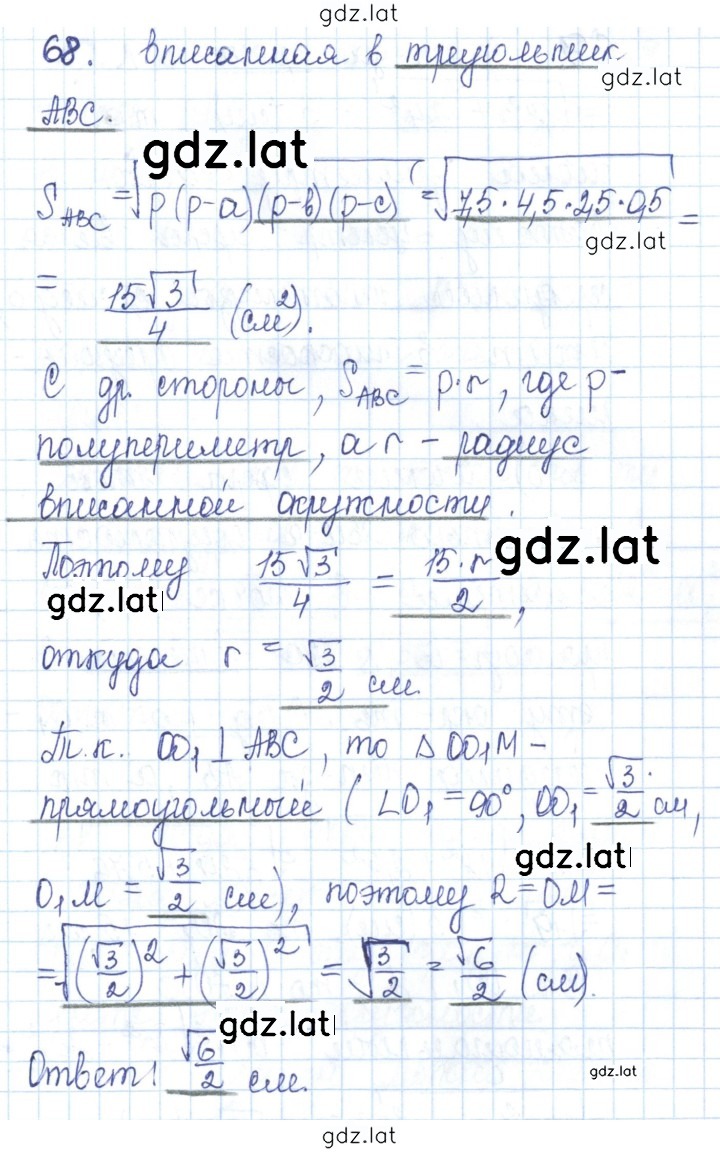 gdz.lat
68. вписанная в треугольник
gdz.lat
ABC.
gdz.lat
S_ABC = √(p(p-a)(p-b)(p-c)) = √(7,5·4,5·2,5·0,5) =
gdz.lat
= 15√3/4 (см²).
С др. стороны, S_ABC = p·r, где p-
полупериметр, а r - радиус
вписанной окружности.
gdz.lat
Поэтому 15√3/4 = 15·r/2,
gdz.lat
откуда r = √3/2 см.
Т.к. OO₁ ⊥ ABC, то △OO₁M -
прямоугольный (∠O₁ = 90°, OO₁ = √3/2 см,
gdz.lat
O₁M = √3/2 см), поэтому R = OM =
= √((√3/2)² + (√3/2)²) = √(3/2) = √6/2 (см).
gdz.lat
Ответ: √6/2 см.
gdz.lat
gdz.lat